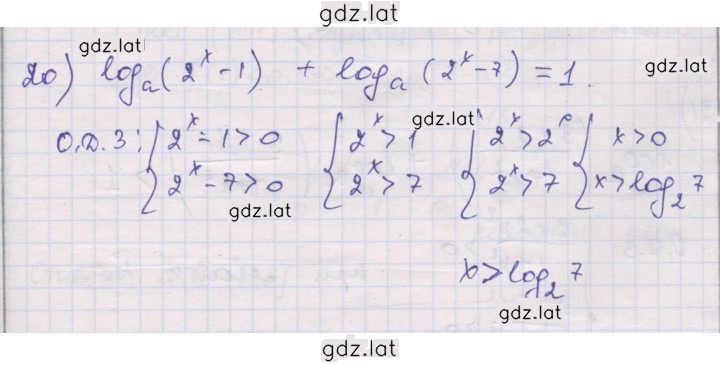 gdz.lat
gdz.lat
20) logₐ(2ˣ-1) + logₐ(2ˣ-7) = 1. gdz.lat
gdz.lat
О.Д.З: { 2ˣ-1>0 { 2ˣ>1 { 2ˣ>2⁰ { x>0
2ˣ-7>0 2ˣ>7 2ˣ>7 x>log₂7
gdz.lat
x>log₂7
gdz.lat
gdz.lat